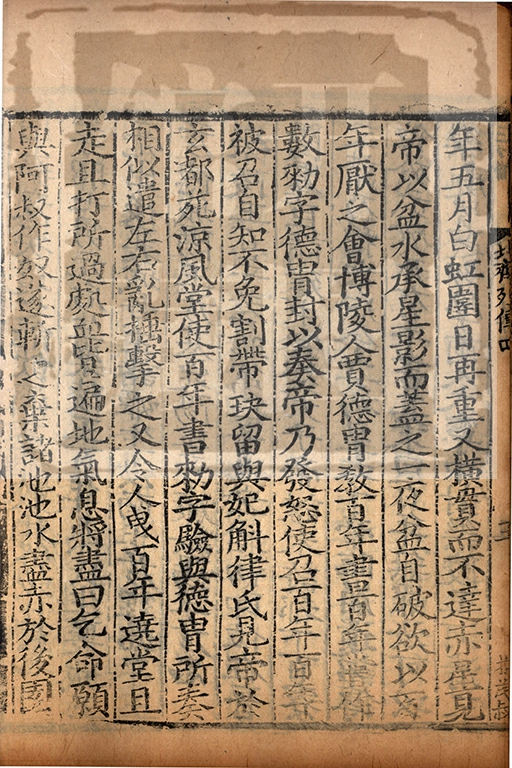 年五月白虹圍日再重又橫貫而不達赤星見
帝以盆水承星影而蓋之一夜盆自破欲以百
年厭之會博陵人賈德胄教百年書百年嘗作
數勑字德胄封以奏帝乃發怒使召百年百年
被召自知不免割帶玦留與妃斛律氏見帝於
玄都死涼風堂使百年書勑字驗與德胄所奏
相似遣左右亂捶擊之又令人曳百年遶堂且
走且打所過處血皆遍地氣息將盡曰乞命願
與阿叔作奴遂斬之棄諸池池水盡赤於後園
北齊列傳四